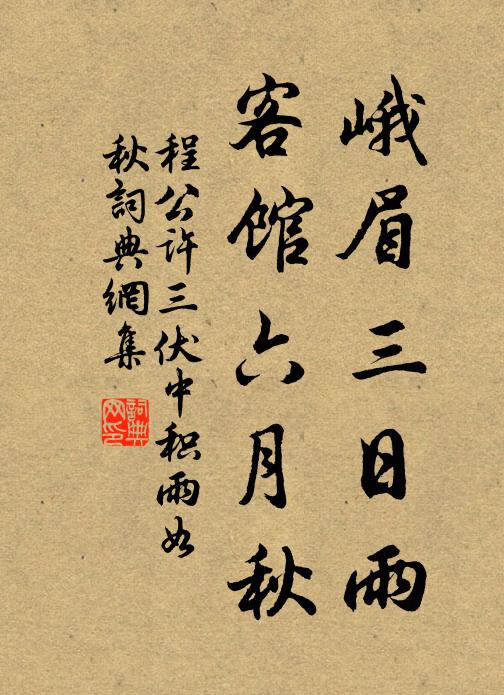 峨眉三日雨
客館六月秋
程公许三伏中积雨如
秋詞典網集
詞典
网印